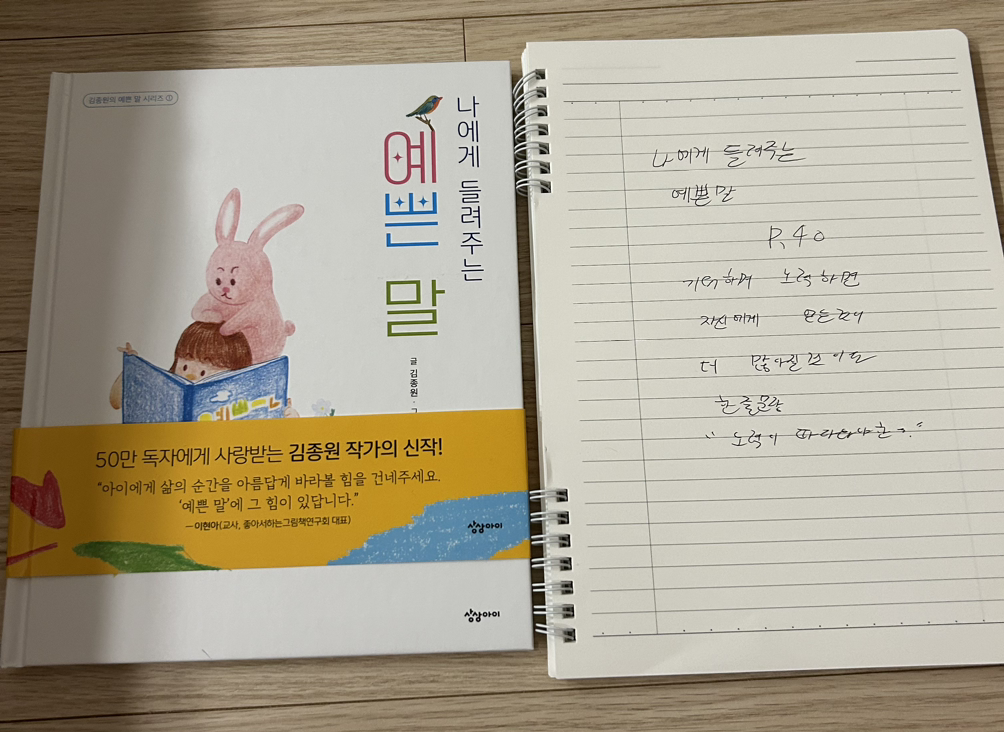 김종원의 예쁜 말 시리즈 ①
나에게 들려주는
예쁜 말
글 김종원 · 그
예쁘
50만 독자에게 사랑받는 김종원 작가의 신작!
“아이에게 삶의 순간을 아름답게 바라볼 힘을 건네주세요.
‘예쁜 말’에 그 힘이 있답니다.”
—이현아(교사, 좋아서하는그림책연구회 대표)
상상아이
상상아이
나에게 들려주는
예쁜말
P. 40
기억하며 노력하면
자신에게 모든 것이
더 많아질 것이다
한줄문장
" 노력이 따라와야 한다."